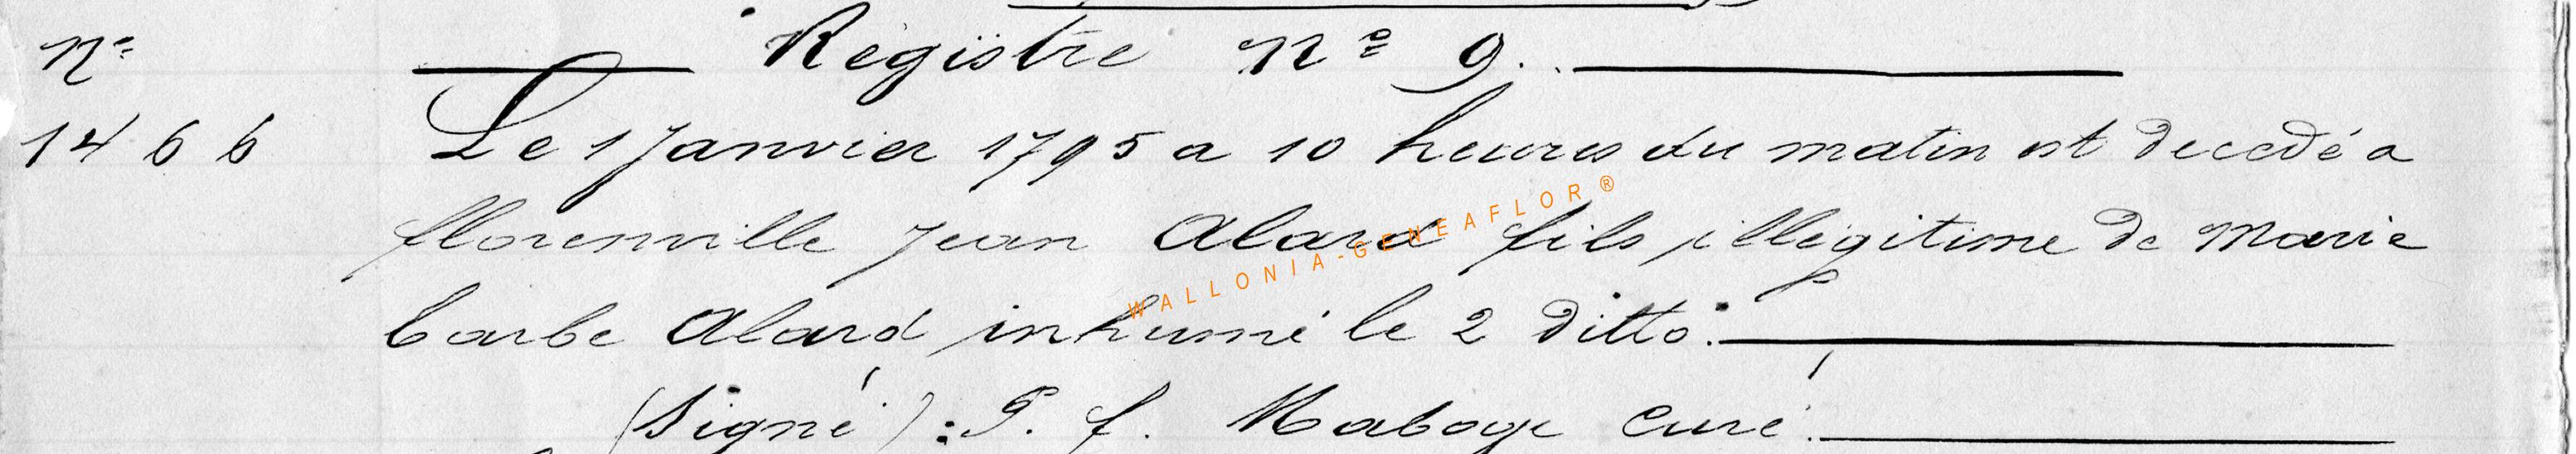 Nº Régistre Nº 9.
1466 Le 1 Janvier 1795 a 10 heures du matin est decedé a
florenville Jean Alard fils illegitime de Marie
barbe Alard inhumé le 2 ditto.
(Signé): P. f. Maboge Curé.
WALLONIA-GENEAFLOR®